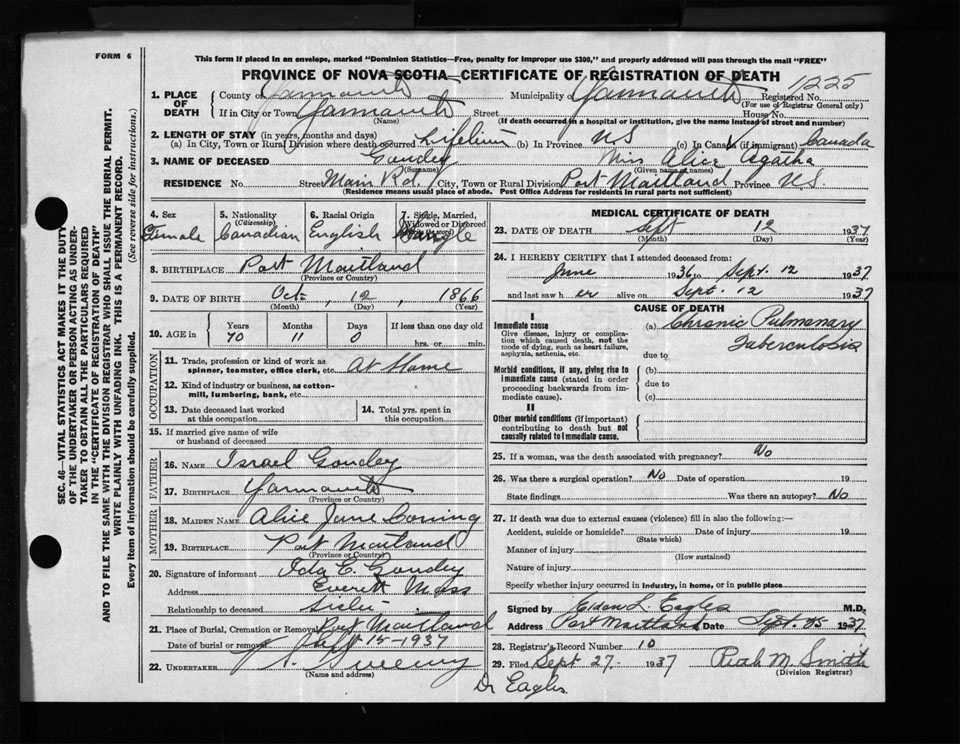 FORM 6
This form if placed in an envelope, marked "Dominion Statistics—Free, penalty for improper use $300," and properly addressed will pass through the mail "FREE"
PROVINCE OF NOVA SCOTIA—CERTIFICATE OF REGISTRATION OF DEATH
1225
1. PLACE OF DEATH
County of Yarmouth Municipality of Yarmouth Registered No.
(For use of Registrar General only)
If in City or Town Yarmouth Street House No.
(Name) (If death occurred in a hospital or institution, give the name instead of street and number)
2. LENGTH OF STAY (in years, months and days)
(a) In City, Town or Rural Division where death occurred Lifetime (b) In Province NS (c) In Canada (if immigrant) Canada
3. NAME OF DECEASED Goudey Miss Alice Agatha
(Surname) (Given name or names)
RESIDENCE No. Street Main Rd. City, Town or Rural Division Port Maitland Province N.S.
(Residence means usual place of abode. Post Office Address for residents in rural parts not sufficient)
4. Sex Female
5. Nationality (Citizenship) Canadian
6. Racial Origin English
7. Single, Married, Widowed or Divorced Single
8. BIRTHPLACE Port Maitland
(Province or Country)
9. DATE OF BIRTH Oct. , 12 , 1866
(Month) (Day) (Year)
10. AGE in Years 70 Months 11 Days 0 If less than one day old
hrs. or min.
OCCUPATION
11. Trade, profession or kind of work as spinner, teamster, office clerk, etc. At Home
12. Kind of industry or business, as cotton-mill, lumbering, bank, etc.
13. Date deceased last worked at this occupation
14. Total yrs. spent in this occupation
15. If married give name of wife or husband of deceased
FATHER
16. NAME Israel Goudey
17. BIRTHPLACE Yarmouth
(Province or Country)
MOTHER
18. MAIDEN NAME Alice Jane Corning
19. BIRTHPLACE Port Maitland
(Province or Country)
20. Signature of informant Ida E. Goudey
Address Everett Mass
Relationship to deceased Sister
21. Place of Burial, Cremation or Removal Port Maitland
Date of burial or removal Sept 15-1937
22. UNDERTAKER Sweeny
(Name and address)
MEDICAL CERTIFICATE OF DEATH
23. DATE OF DEATH Sept 12 1937
(Month) (Day) (Year)
24. I HEREBY CERTIFY that I attended deceased from:
June 1936 to Sept. 12 1937
and last saw her alive on Sept. 12 1937
CAUSE OF DEATH
I
Immediate cause
Give disease, injury or complication which caused death, not the mode of dying, such as heart failure, asphyxia, asthenia, etc.
(a) Chronic Pulmonary
Tuberculosis
due to
Morbid conditions, if any, giving rise to immediate cause (stated in order proceeding backwards from immediate cause).
(b)
due to
(c)
II
Other morbid conditions (if important) contributing to death but not causally related to immediate cause.
25. If a woman, was the death associated with pregnancy? No
26. Was there a surgical operation? No Date of operation 19
State findings Was there an autopsy? No
27. If death was due to external causes (violence) fill in also the following:—
Accident, suicide or homicide? Date of injury 19
(State which)
Manner of injury
(How sustained)
Nature of injury
Specify whether injury occurred in industry, in home, or in public place
Signed by Elden L. Eagles M.D.
Address Port Maitland Date Sept. 25 1937
28. Registrar's Record Number 10
29. Filed Sept 27- 1937 M. Smith
(Division Registrar)
Dr Eagles
SEC. 46—VITAL STATISTICS ACT MAKES IT THE DUTY
OF THE UNDERTAKER OR PERSON ACTING AS UNDER-
TAKER TO OBTAIN ALL THE PARTICULARS REQUIRED
IN THE "CERTIFICATE OF REGISTRATION OF DEATH"
AND TO FILE THE SAME WITH THE DIVISION REGISTRAR WHO SHALL ISSUE THE BURIAL PERMIT.
WRITE PLAINLY WITH UNFADING INK. THIS IS A PERMANENT RECORD.
Every item of information should be carefully supplied. (See reverse side for instructions.)